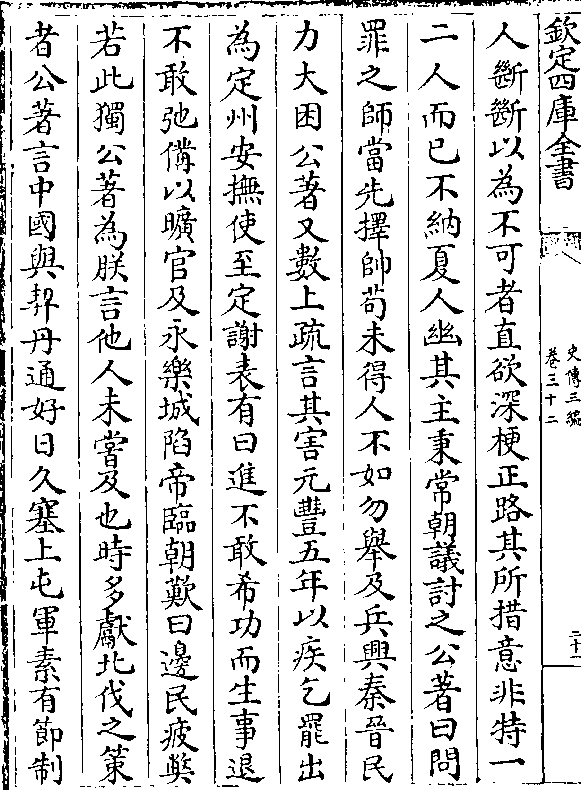 欽定四庫全書
史傳三編
卷三十二
人斷斷以為不可者直欲深梗正路其所措意非特一
二人而已不納夏人幽其主秉常朝議討之公著曰問
罪之師當先擇帥苟未得人不如勿舉及兵興秦晉民
力大困公著又數上疏言其害元豐五年以疾乞罷出
為定州安撫使至定謝表有曰進不敢希功而生事退
不敢弛備以曠官及永樂城陷帝臨朝歎曰邊民疲弊
若此獨公著為朕言他人未嘗及也時多獻北伐之策
者公著言中國與契丹通好日久塞上屯軍素有節制